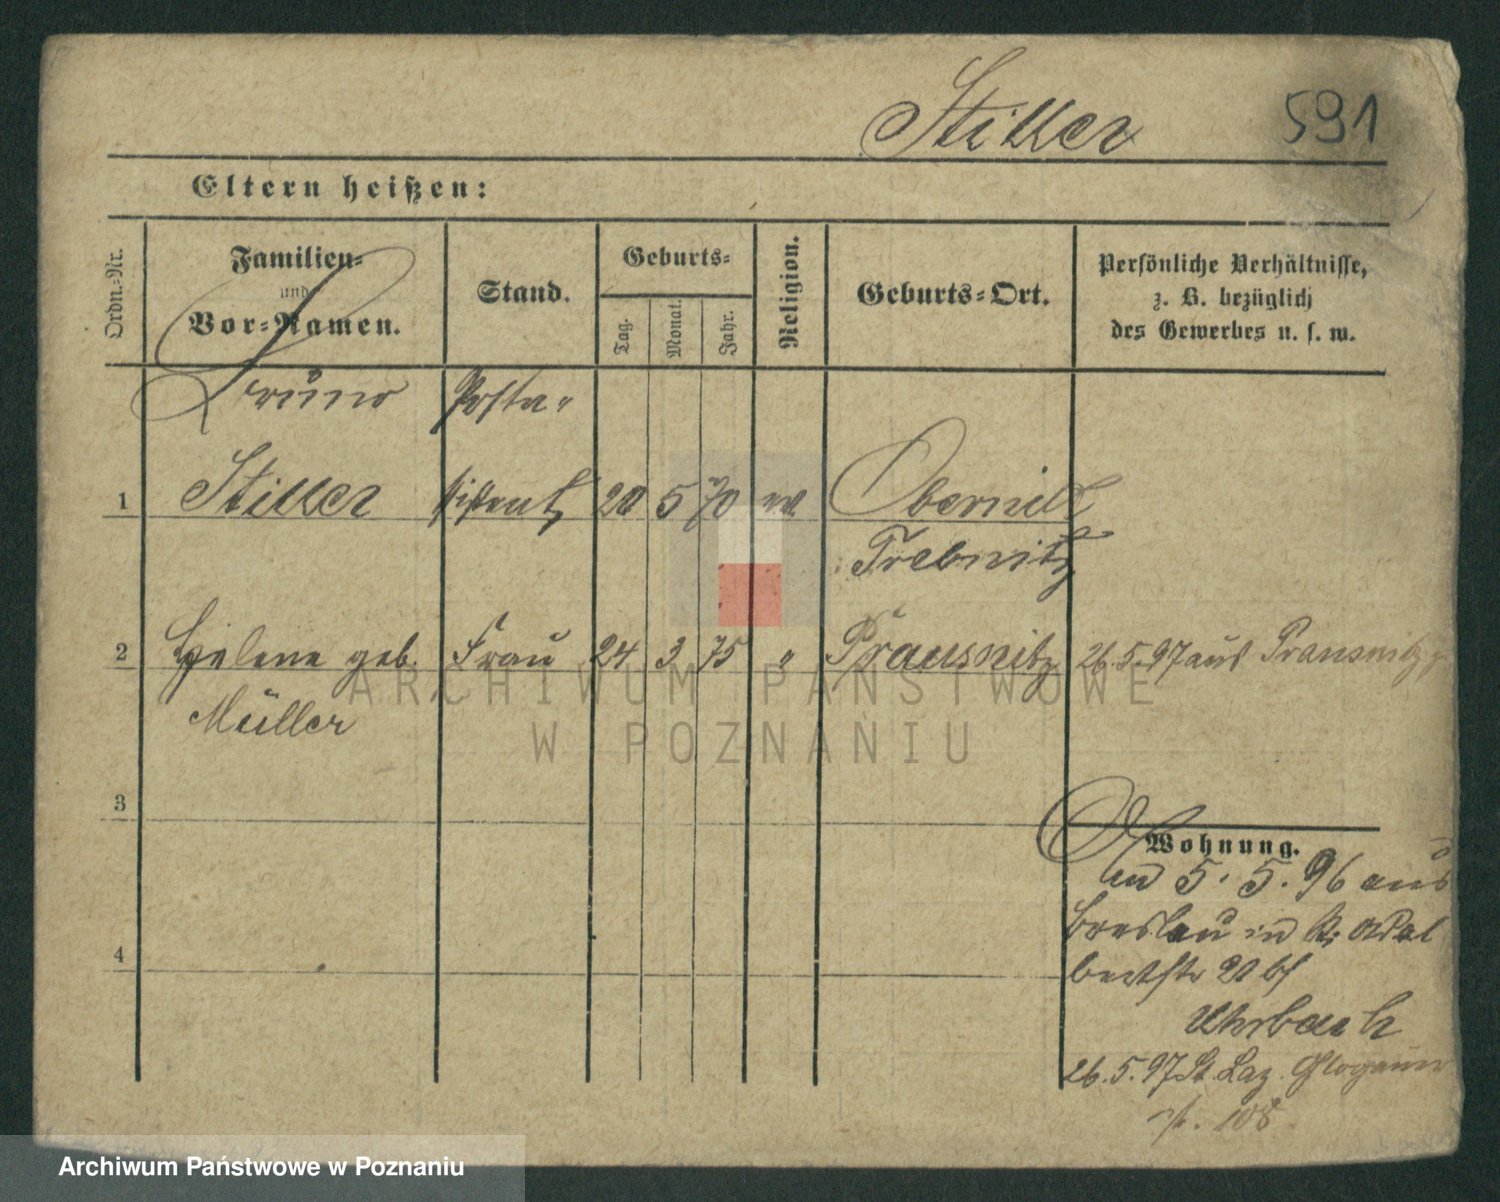 Stiller 591
Eltern heißen:
Ordn.-Nr.
Familien-
und
Vor-Namen.
Stand.
Geburts-
Tag.
Monat.
Jahr.
Religion.
Geburts-Ort.
Persönliche Verhältnisse,
z. B. bezüglich
des Gewerbes u. s. w.
Bruno Posta-
1 Stiller sistent 20 5 70 ev Obernick
Trebnitz
2 Helene geb. Frau 24 3 75 " Prausnitz 26.5.97 aus Prausnitz
Müller
3
Wohnung.
5. 5. 96 aus
Breslau in Adal
4
bertstr 20 bf
26.5.97 St. Laz. Glogauer
str. 108
ARCHIWUM PAŃSTWOWE
W POZNANIU
Archiwum Państwowe w Poznaniu